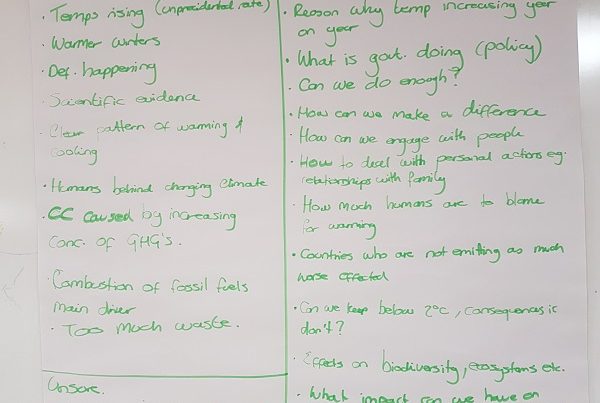 · Temps rising (unprecidented rate)
· Warmer winters
· Def. happening
· Scientific evidence
· Clear pattern of warming &
cooling
· Humans behind changing climate
· CC caused by increasing
conc. of GHG's.
· Combustion of fossil fuels
main driver
· Too much waste.
Unsure.
· Reason why temp increasing year
on year
· What is govt. doing (policy)
· Can we do enough?
· How can we make a difference
· How can we engage with people
· How to deal with personal actions eg.
relationships with family
· How much humans are to blame
for warming
· Countries who are not emitting as much
worse effected
· Can we keep below 2°C, consequences if
don't?
· Effects on biodiversity, ecosystems etc.
· What impact can we have on